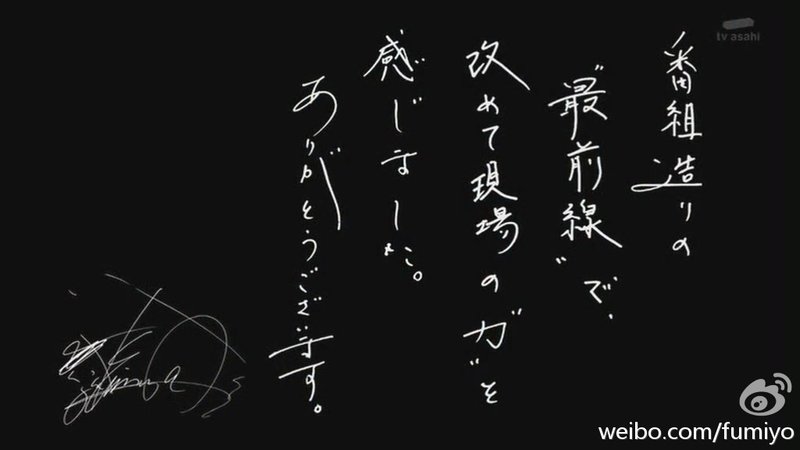 番組造りの
"最前線"で、
改めて現場の"力"を
感じました。
ありがとうございます。
tv asahi
weibo.com/fumiyo